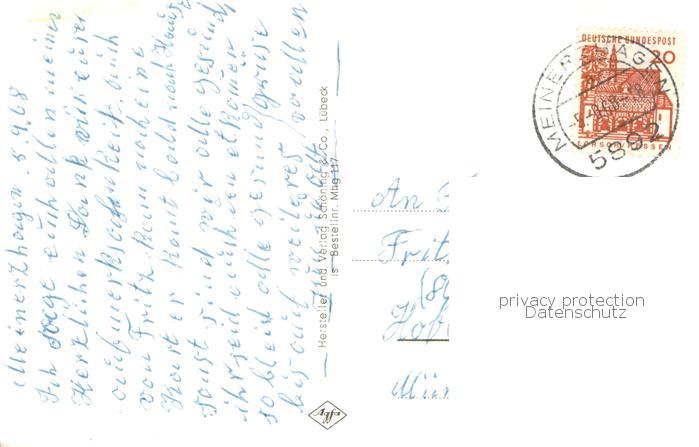 Meinerzhagen 5.9.68
Ich sage euch allen meinen
Herzlichen Dank für eure
aufmerksamkeit. auch
von Fritz kam eine
Karte er komt bald nach Hause
sonst sind wir alle gesund
ihr seid auch
so bleibt alle gesund Grüse
bis auf weiteres von allen
Hersteller und Verlag Schöning & Co., Lübeck
is- Bestellnr. Mhg 117
Agfa
DEUTSCHE BUNDESPOST
20
LORSCH/HESSEN
MEINERZHAGEN
5892
An
Fritz
privacy protection
Datenschutz